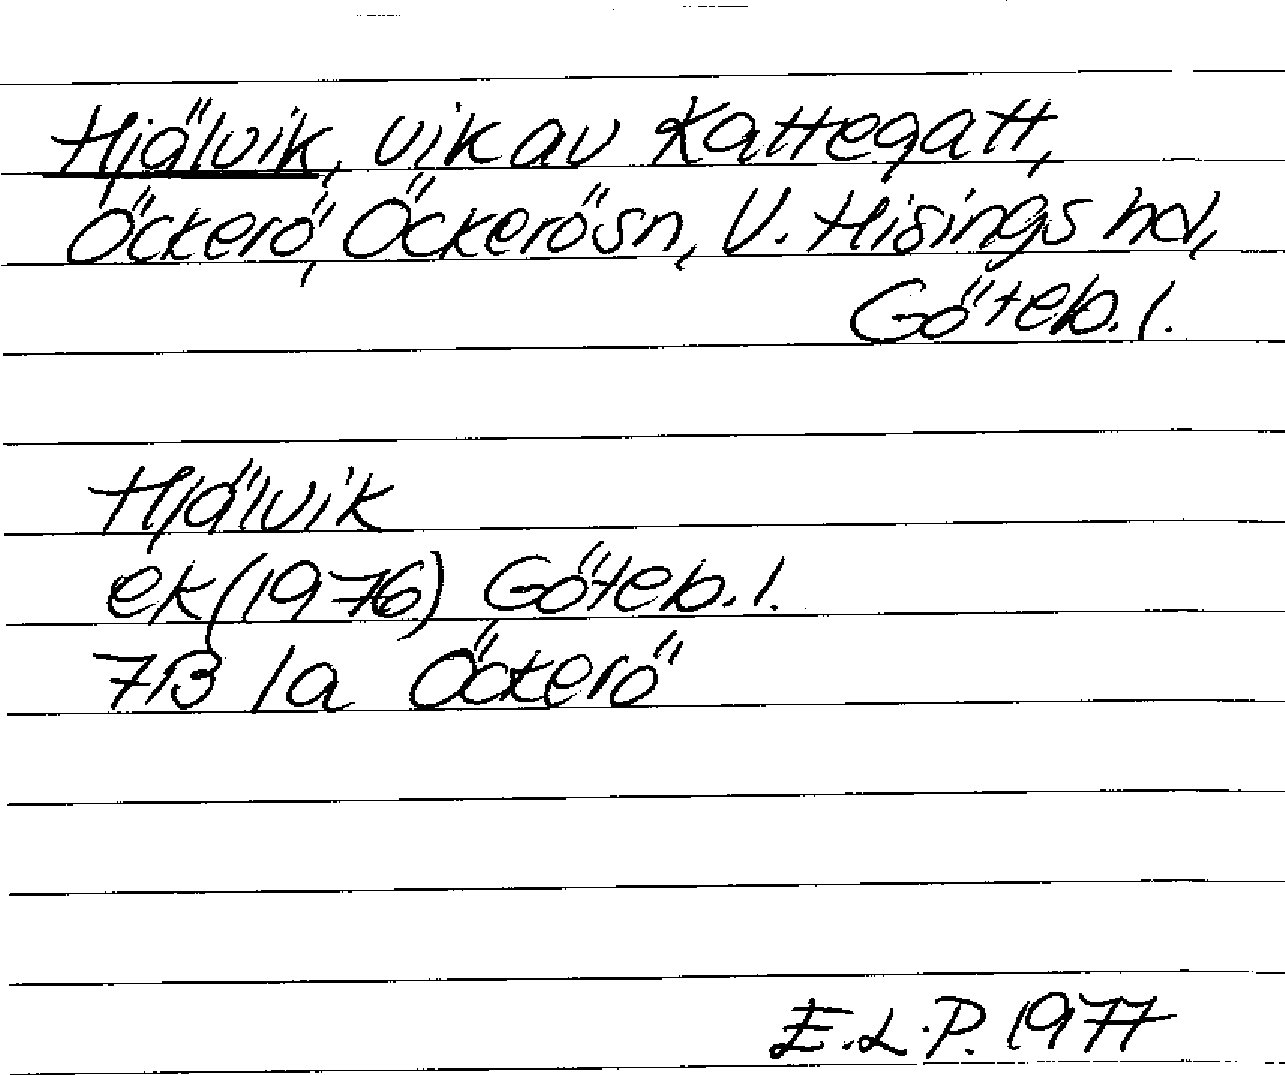 Hjälvik, vik av Kattegatt,
Öckerö, Öckerö sn, V. Hisings hd,
Göteb. l.
Hjälvik
ek (1976) Göteb. l.
7B 1a Öckerö
E.L.P. 1977